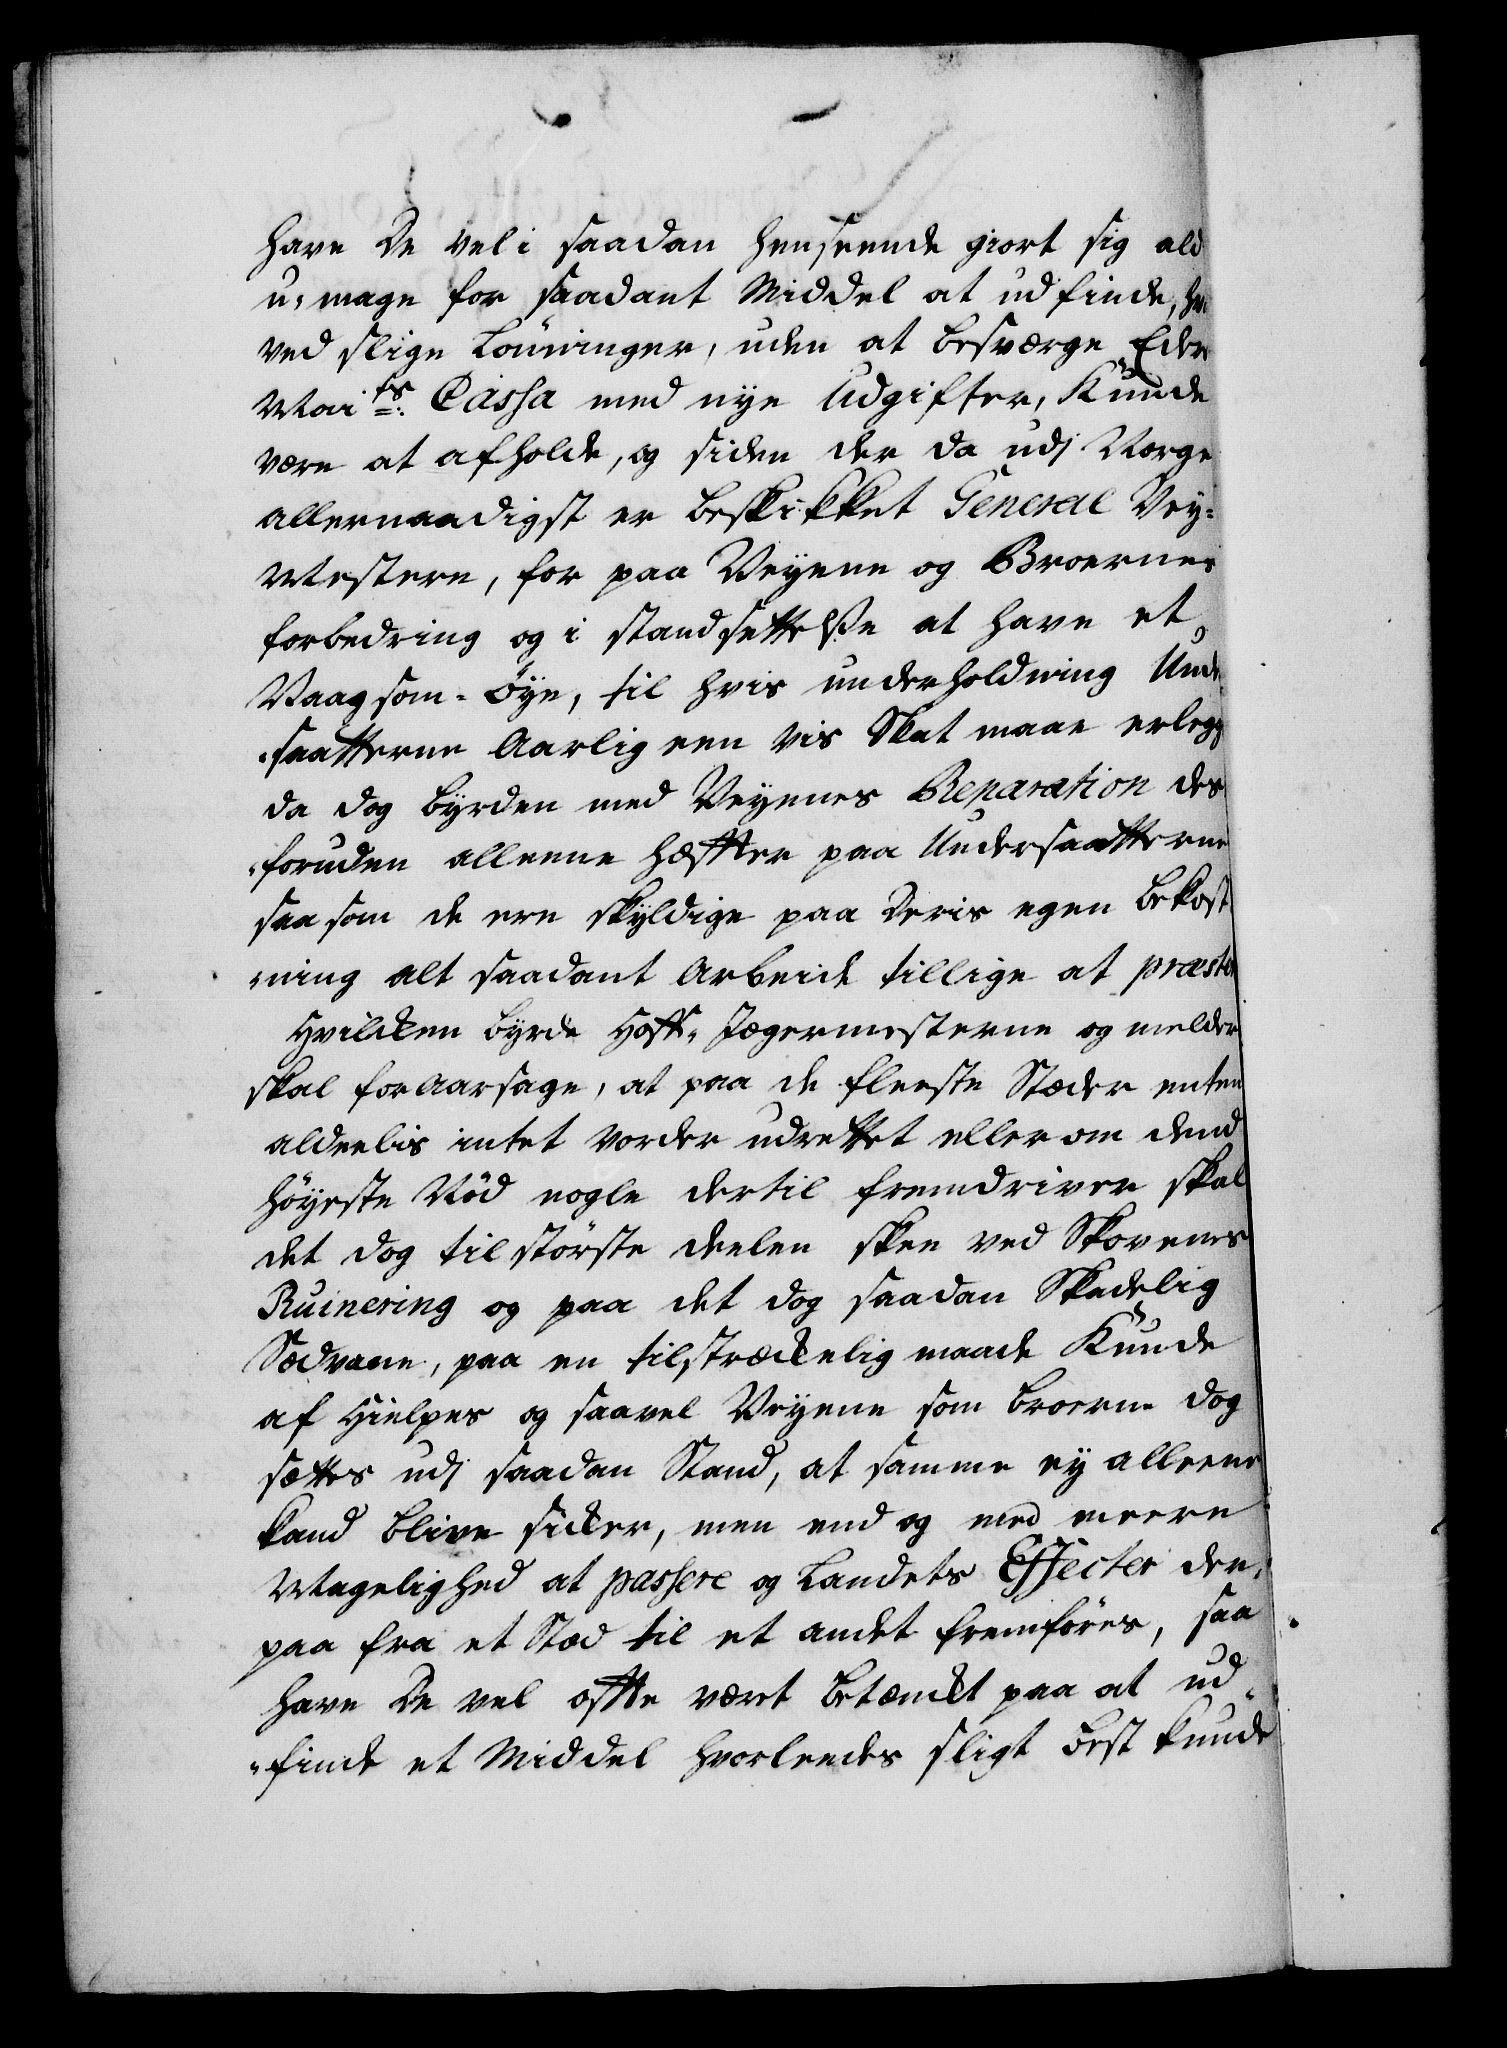 have De vel i saadan henseende giort sig ald
u-mage for saadant Middel at udfinde,
ved slige Lønninger, uden at besværge Eders
Mai ts: Cassa med nye Udgifter, Kunde
være at afholde, og siden der da udj Norge
allernaadigst er beskikket General Vey-
Mestere, for paa Veyene og Broernes
forbedring og i standsettelsse at have et
Vaagsom-Øye, til hvis underholdning Und
saatterne Aarlig een vis Skat maae erlegg
da dog byrden med Veyenes Reparation des
foruden alleene hæffter paa Undersaatterne
saasom de ere skyldige paa Deris egen bekost
ning alt saadant Arbeide tillige at præste
Hvilcken byrde Hoff-Jægermesterne og melder
skal foraarsage, at paa de fleeste Stæder enten
aldeelis intet vorder udrettet eller om dend
høyeste Nød nogle dertil fremdriver skal
det dog til største deelen skee ved Skovenes
Ruinering og paa det dog saadan Skadelig
Sædvane, paa en tilstræckelig maade Kunde
af Hielpes og saavel Veyene som broerne dog
sættes udj saadan Stand, at samme ey alleene
kand blive sicker, men end og med meere
Magelighed at passere og Landets Effecter der-
paa fra et Stæd til et andet fremføres, saa
have De vel offte vært betænckt paa at ud-
finde et Middel hvorleedes sligt best kunde